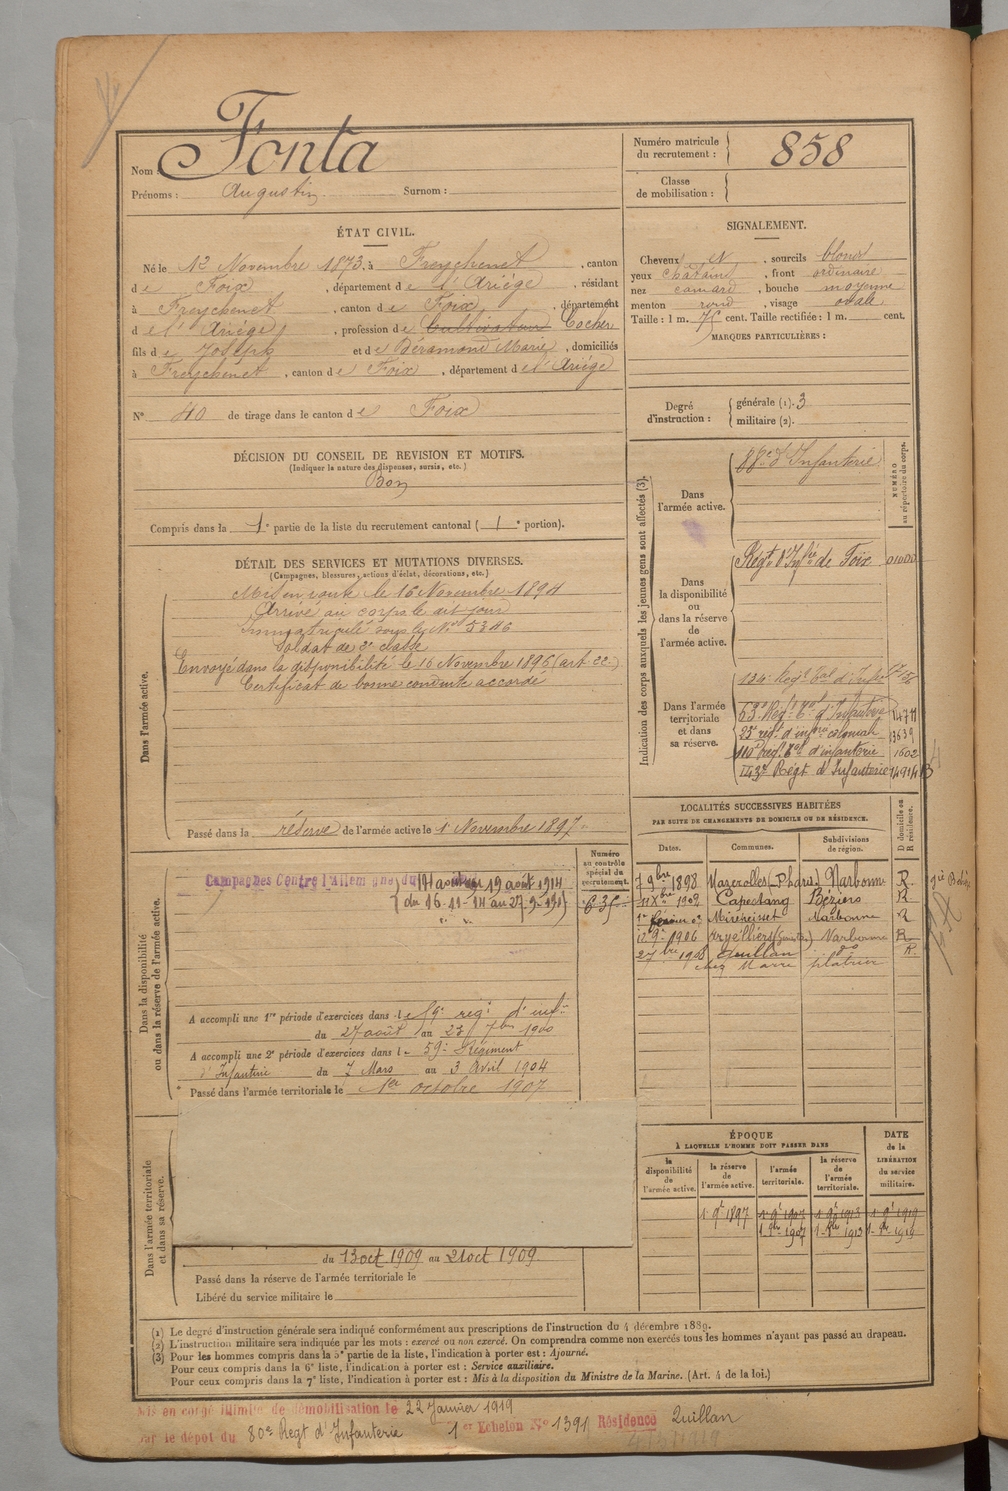 Nom : Fonta
Prénoms : Augustin Surnom :
Numéro matricule du recrutement : 858
Classe de mobilisation :
ÉTAT CIVIL.
Né le 12 Novembre 1873, à Freychenet, canton
de Foix, département de l'Ariège, résidant
à Freychenet, canton de Foix, département
de l'Ariège, profession de Cultivateur Cocher
fils de Joseph et de Béramond Marie, domiciliés
à Freychenet, canton de Foix, département de l'Ariège
N° 40 de tirage dans le canton de Foix
SIGNALEMENT.
Cheveux N, sourcils blonds
yeux châtains, front ordinaire
nez camard, bouche moyenne
menton rond, visage ovale
Taille : 1 m. 75 cent. Taille rectifiée : 1 m. cent.
MARQUES PARTICULIÈRES :
Degré d'instruction : générale (1). 3
militaire (2).
DÉCISION DU CONSEIL DE REVISION ET MOTIFS.
(Indiquer la nature des dispenses, sursis, etc.)
Bon
Compris dans la 1e partie de la liste du recrutement cantonal (1e portion).
DÉTAIL DES SERVICES ET MUTATIONS DIVERSES.
(Campagnes, blessures, actions d'éclat, décorations, etc.)
Dans l'armée active.
Mis en route le 16 Novembre 1894
Arrivé au corps le dit jour
Immatriculé sous le N° 5346
Soldat de 2e classe
Envoyé dans la disponibilité le 16 Novembre 1896 (art. 22.)
Certificat de bonne conduite accordé
Passé dans la réserve de l'armée active le 1 Novembre 1897.
Indication des corps auxquels les jeunes gens sont affectés (3).
NUMÉRO au répertoire du corps.
Dans l'armée active.
88e d'Infanterie
Dans la disponibilité ou dans la réserve de l'armée active.
Régt d'Infrie de Foix 01000
Dans l'armée territoriale et dans sa réserve.
63e Régt Tal d'Infanterie 14711
25 régt d'infrie coloniale 13639
110e régt Tal d'infanterie 1602
143e Régt d'Infanterie 14914B
Dans la disponibilité ou dans la réserve de l'armée active.
Numéro au contrôle spécial du recrutement.
635
Campagnes Contre l'Allemagne du 14 août au 19 août 1914
du 16-11-14 au 27-9-1917
A accompli une 1re période d'exercices dans le 59e régt d'infie
du 27 août au 23 7bre 1900
A accompli une 2e période d'exercices dans l 59e Régiment
d'Infanterie du 7 Mars au 3 Avril 1904
Passé dans l'armée territoriale le 1er octobre 1907
LOCALITÉS SUCCESSIVES HABITÉES
PAR SUITE DE CHANGEMENTS DE DOMICILE OU DE RÉSIDENCE.
Dates. Communes. Subdivisions de région. D domicile ou R résidence.
7 9bre 1898 Mazerolles Narbonne R
11 Xbre 1902 Capestang Béziers R
1er 03 Mirepeisset Narbonne R
1906 Narbonne R
27 bre 1908 Quillan do R.
chez Marre platrier
Dans l'armée territoriale et dans sa réserve.
du 13 oct 1909 au 21 oct 1909.
Passé dans la réserve de l'armée territoriale le
Libéré du service militaire le
ÉPOQUE
À LAQUELLE L'HOMME DOIT PASSER DANS
DATE de la LIBÉRATION du service militaire.
la disponibilité de l'armée active.
la réserve de l'armée active.
l'armée territoriale.
la réserve de l'armée territoriale.
1 9e 1897 1 9e 1907 1 9e 1913 1 9e 1919
1 8bre 1907 1 8bre 1913 1 8bre 1919
(1) Le degré d'instruction générale sera indiqué conformément aux prescriptions de l'instruction du 4 décembre 1889.
(2) L'instruction militaire sera indiquée par les mots : exercé ou non exercé. On comprendra comme non exercés tous les hommes n'ayant pas passé au drapeau.
(3) Pour les hommes compris dans la 5e partie de la liste, l'indication à porter est : Ajourné.
Pour ceux compris dans la 6e liste, l'indication à porter est : Service auxiliaire.
Pour ceux compris dans la 7e liste, l'indication à porter est : Mis à la disposition du Ministre de la Marine. (Art. 4 de la loi.)
Mis en congé illimité de démobilisation le 22 Janvier 1919
par le dépôt du 80e Régt d'Infanterie 1er Echelon N° 1391 Résidence Quillan